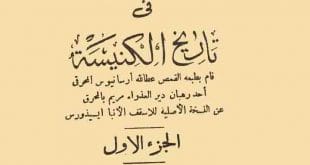 في
تاريخ الكنيسة
قام بطبعه القمص عطاالله أرسانيوس المحرقي
أحد رهبان دير العذراء مريم بالمحرق
عن النسخة الأصلية للاسقف الأنبا ايسيذورس
الجزء الاول